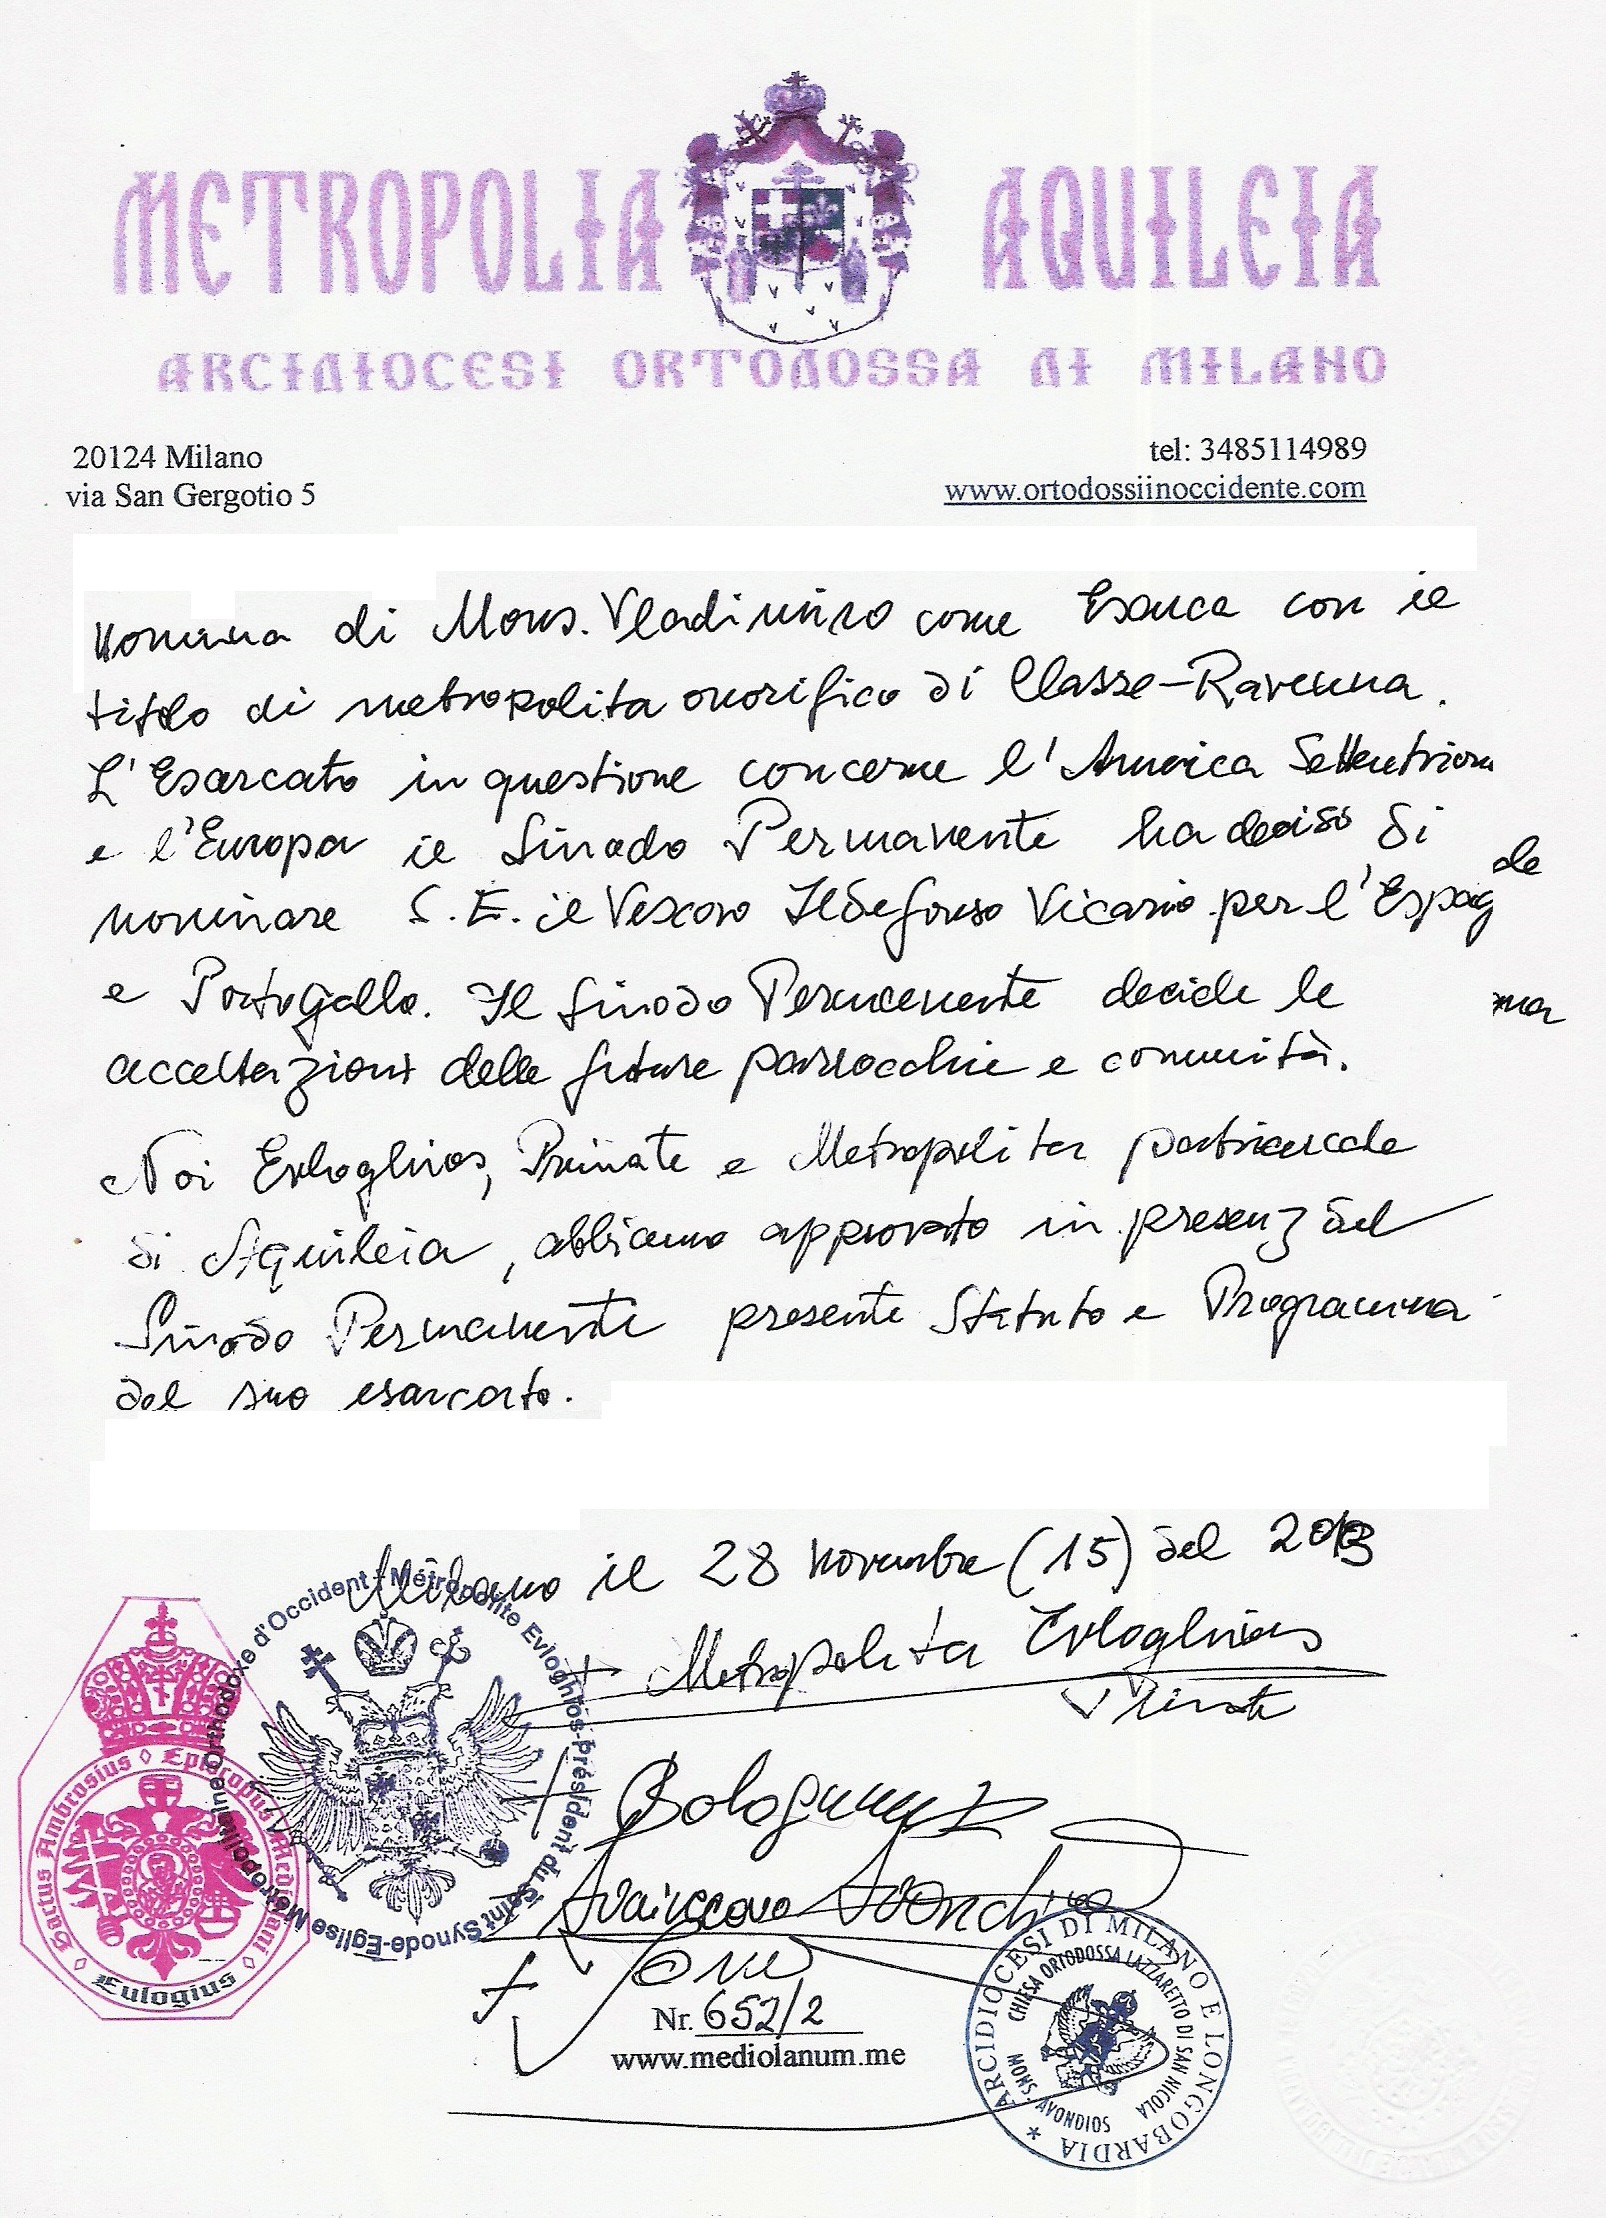 METROPOLIA AQUILEIA
ARCIDIOCESI ORTODOSSA DI MILANO
20124 Milano
via San Gergotio 5
tel: 3485114989
www.ortodossiinoccidente.com
nomina di Mons. Vladimiro come Esarca con il
titolo di metropolita onorifico di Classe-Ravenna.
L'Esarcato in questione concerne l'America Settentrion
e l'Europa il Sinodo Permanente ha deciso di
nominare S.E. il Vescovo Ildefonso Vicario per l'Espag
e Portogallo. Il Sinodo Permanente decide le
accettazioni delle future parrocchie e comunità.
Noi Evloghios, Primate e Metropolita patriarcale
di Aquileia, abbiamo approvato in presenz del
Sinodo Permanente presente Statuto e Programma
del suo esarcato.
Milano il 28 novembre (15) del 2013
+ Metropolita Evloghios
Primate
+ Avondios
Nr. 652/2
www.mediolanum.me
Sacrus Ambrosius ◊ Episcopus Mediolani ◊
Eulogius
Eglise Métropolitaine Orthodoxe d'Occident - Métropolite Evloghios-Président du Saint Synode-
ARCIDIOCESI DI MILANO E LONGOBARDIA *
CHIESA ORTODOSSA LAZZARETTO DI SAN NICOLA
MONS. AVONDIOS